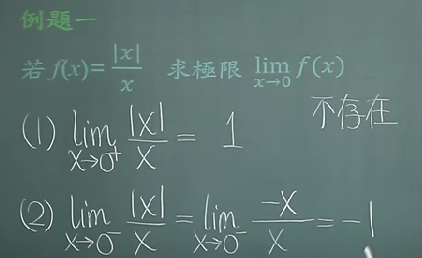 例題一
若 f(x)=|x|/x 求極限 lim x→0 f(x)
不存在
(1) lim x→0⁺ |x|/x = 1
(2) lim x→0⁻ |x|/x = lim x→0⁻ -x/x = -1